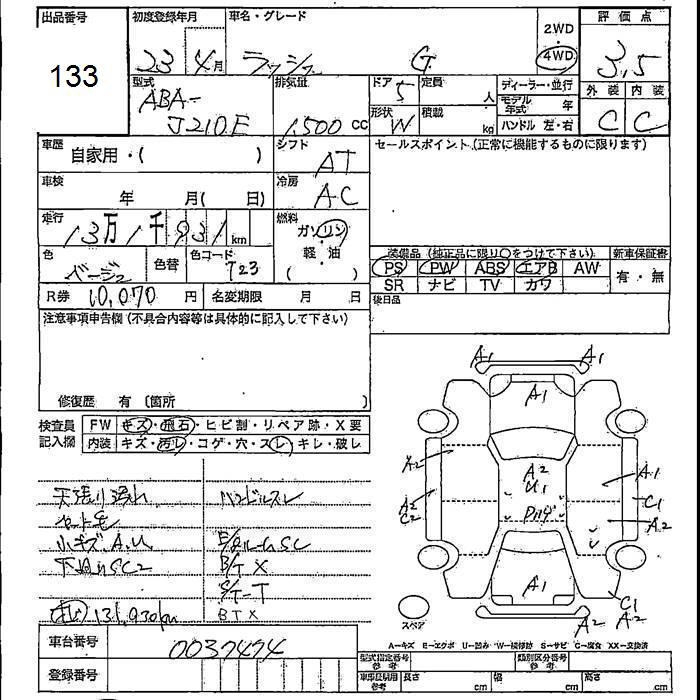 出品番号 初度登録年月 車名・グレード 評価点
133 23 4月 ラッシュ G 2.WD 4WD 3,5
型式 排気量 ドア 5 定員 人 ディーラー・並行 外装 内装
ABA- モデル年式 年 C C
J210E 1,500 cc 形状 W 積載 kg ハンドル 左・右
車歴 自家用・( ) シフト AT セールスポイント(正常に機能するものに限ります)
車検 年 月( 日) 冷房 AC
走行 13万1千931km 燃料 ガソリン
軽・油
( )
色 ベージュ 色替 色コード T23
装備品(純正品に限り○をつけて下さい) 新車保証書
PS PW ABS エアB AW 有・無
SR ナビ TV カワ
R券 10,070 円 名変期限 月 日 後日品
注意事項申告欄(不具合内容等は具体的に記入して下さい)
修復歴 有 〔箇所 〕
検査員記入欄 FW キズ・飛石・ヒビ割・リペア跡・X要
内装 キズ・汚レ・コゲ・穴・スレ・キレ・破レ
天張り汚れ ハンドルスレ
小キズ、A.U
下廻りSC2 B/T X
S/T-T
131,930km BTX
車台番号 0037474
登録番号
A1 A1
A1
A2 A1
A2
U1
A2
C2
C1
A2
A1
C1
A2 A2
スペア
A-キズ E-エクボ U-凹み W-補修跡 S-サビ C-腐食 XX-交換済
型式指定番号 参考 類別区分番号 参考
車庫証明用 参考 長さ cm 幅 cm 高さ cm